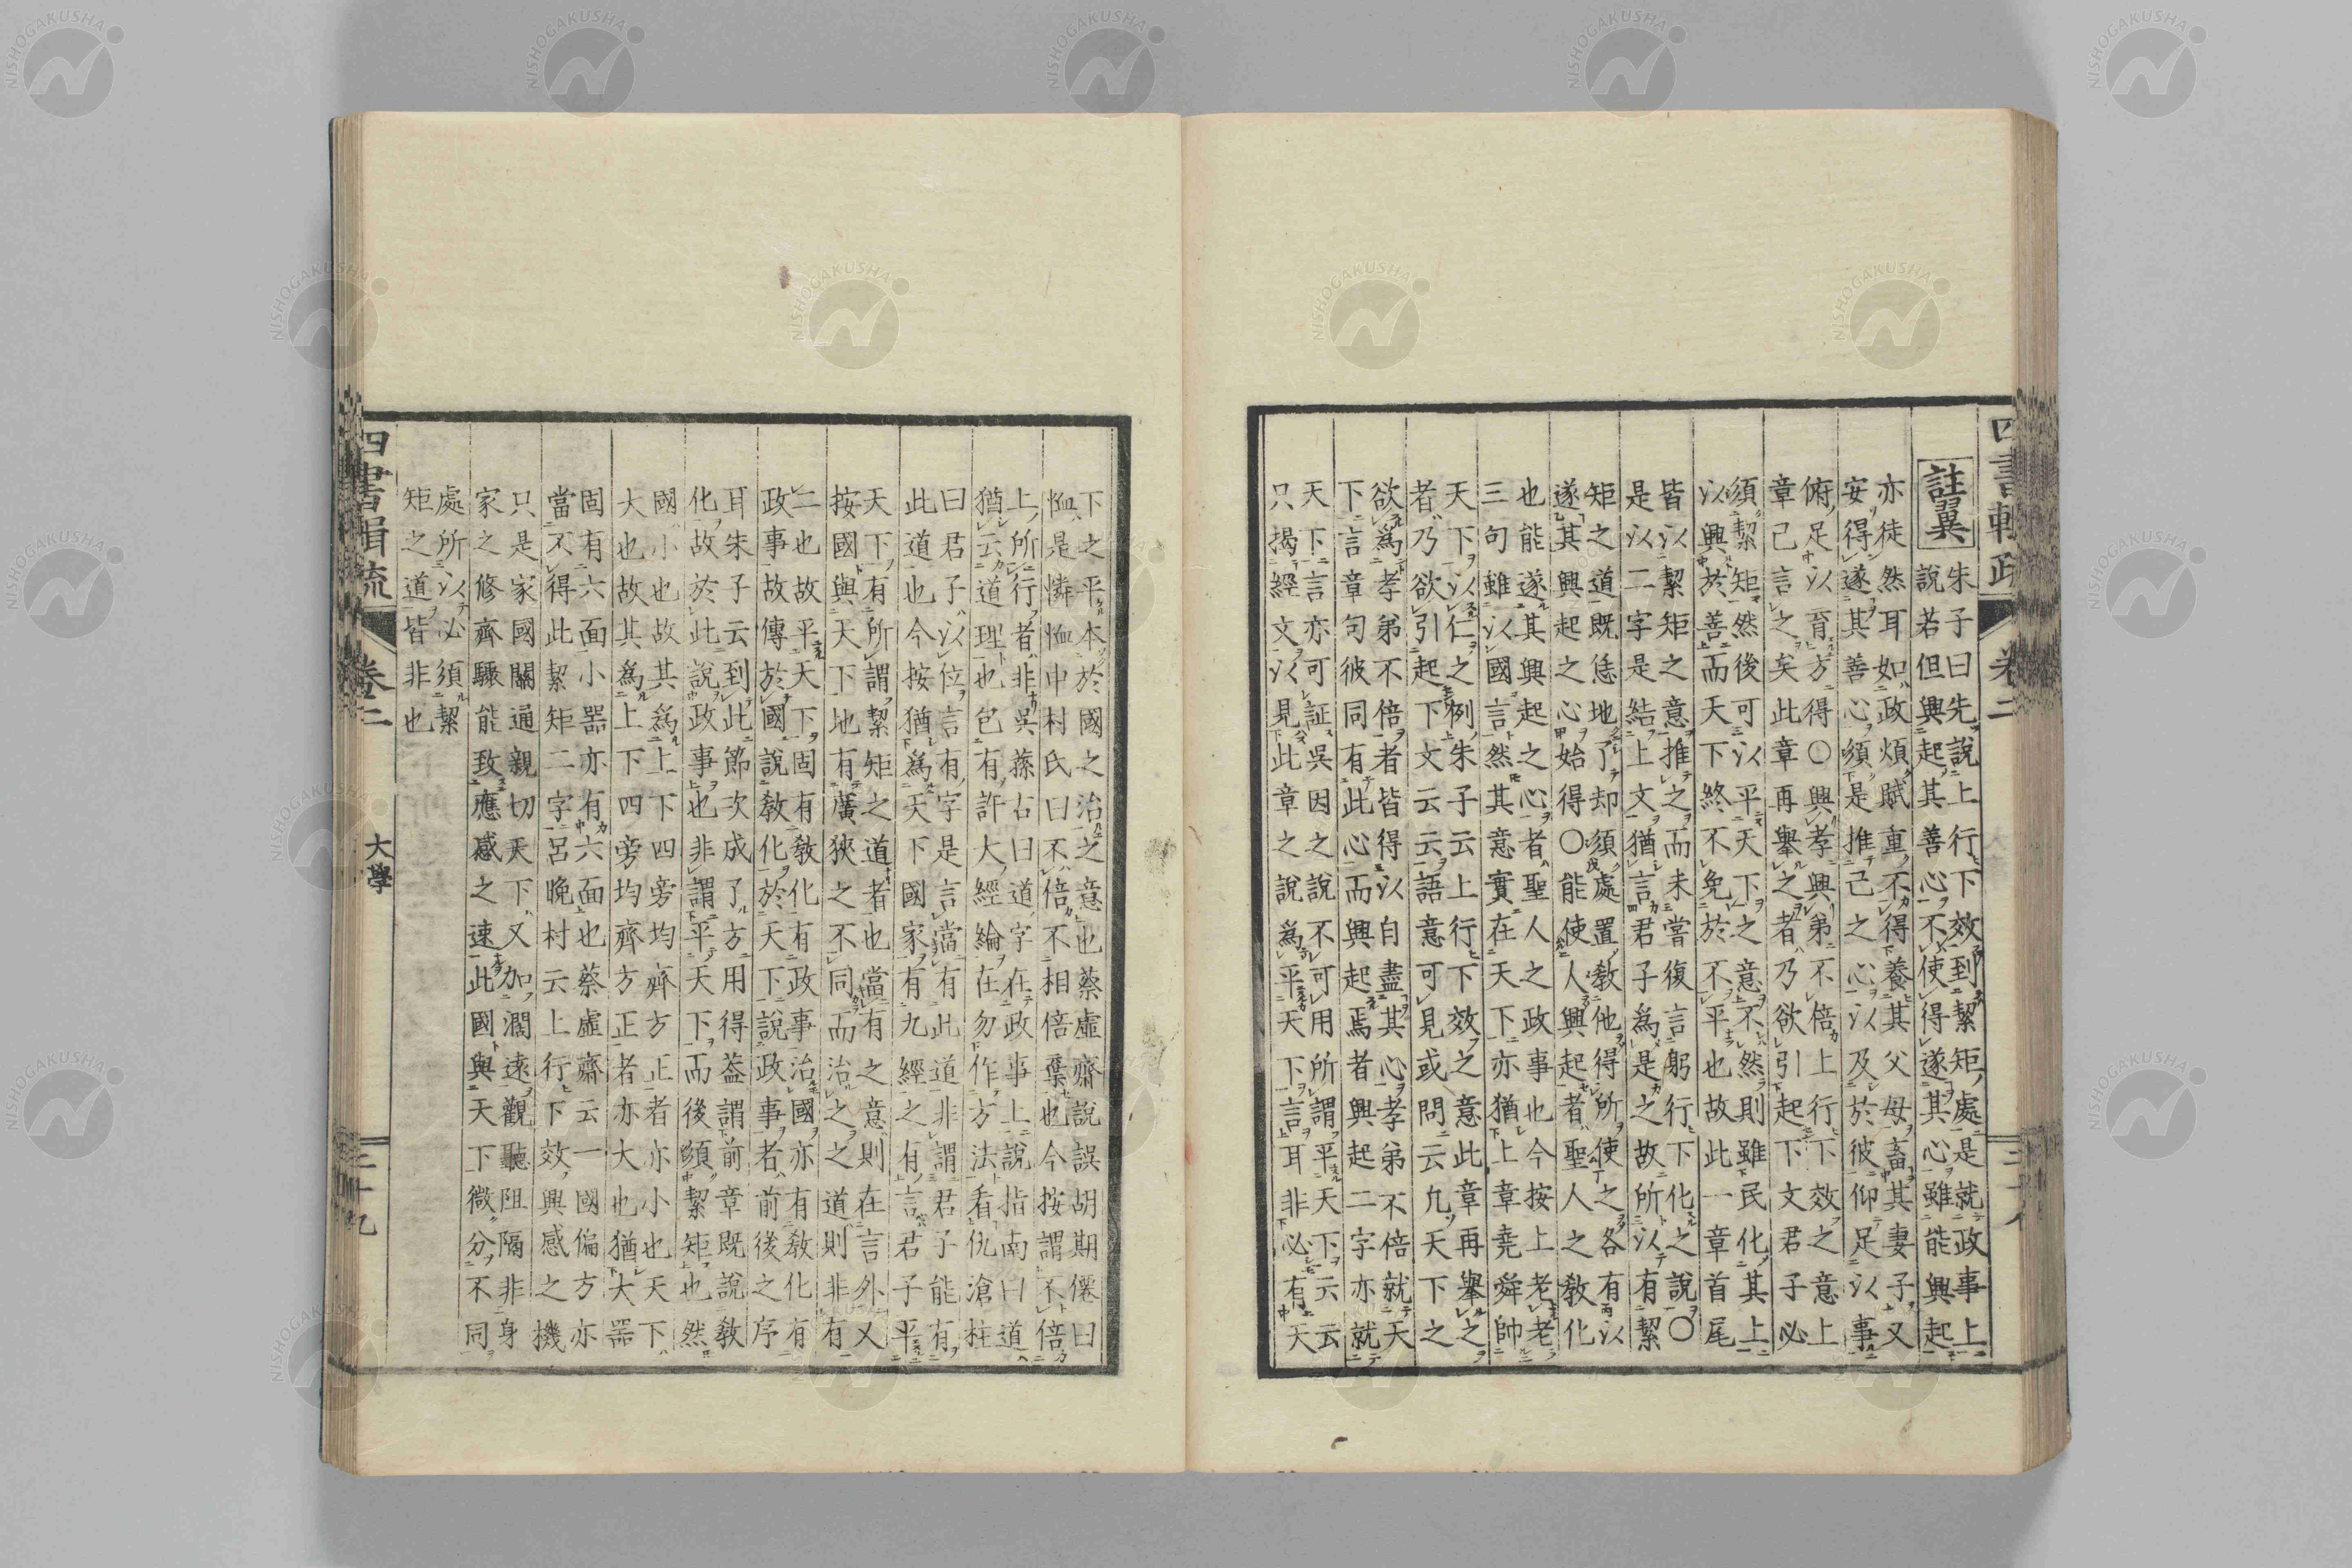 四書輯疏 卷二
註翼
朱子曰先說上行下效到絜矩處是就政事上
說若但興起其善心不使得遂其心雖能興起
亦徒然耳如政煩賦重不得養其父母畜其妻子又
安得遂其善心須是推己之心以及於彼仰足以事
俯足以育方得○興孝興弟不倍上行下效之意上
章己言之矣此章再舉之者乃欲引起下文君子必
須絜矩然後可以平天下之意不然則雖民化其上
以興於善而天下終不免於不平也故此一章首尾
皆以絜矩之意推之而未嘗復言躬行下化之說○
是以二字是結上文猶言君子為是之故所以有絜
矩之道既恁地了却須處置教他得所使之各有以
遂其興起之心始得○能使人興起者聖人之教化
也能遂其興起之心者聖人之政事也今按上老老
三句雖以國言然其意實在天下亦猶上章堯舜帥
天下以仁之例朱子云上行下效之意此章再舉之
者乃欲引起下文云云語意可見或問云凡天下之
欲為孝弟不倍者皆得以自盡其心孝弟不倍就天
下言章句彼同有此心而興起焉者興起二字亦就
天下言亦可証吳因之說不可用所謂平天下云云
只揭經文以見此章之說為平天下言耳非必有天
下之平本於國之治之意也蔡虛齋說誤胡期僊曰
恤是憐恤中村氏曰不倍不相倍棄也今按謂不倍
上所行者非吳蓀右曰道字在政事上說指南曰道
猶云道理也包有許大經綸在勿作方法看仇滄柱
曰君子以位言有字是言當有此道非謂君子能有
此道也今按猶為天下國家有九經之有言君子平
天下有所謂絜矩之道者也當有之意則在言外又
按國與天下地有廣狹之不同而治之之道則非有
二也故平天下固有教化有政事治國亦有教化有
政事故傳於國說教化於天下說政事者前後之序
耳朱子云到此節次成了方用得蓋謂前章既說教
化故於此說政事也非謂平天下而後須絜矩也然
國小也故其為上下四旁均齊方正者亦小也天下
大也故其為上下四旁均齊方正者亦大也猶大器
固有六面小器亦有六面也蔡虛齋云一國偏方亦
當不得此絜矩二字呂晚村云上行下效興感之機
只是家國關通親切天下又加濶遠觀聽阻隔非身
家之修齊驟能致應感之速此國與天下微分不同
處所以必須絜
矩之道皆非也
四書輯疏 卷二 大學 三十九